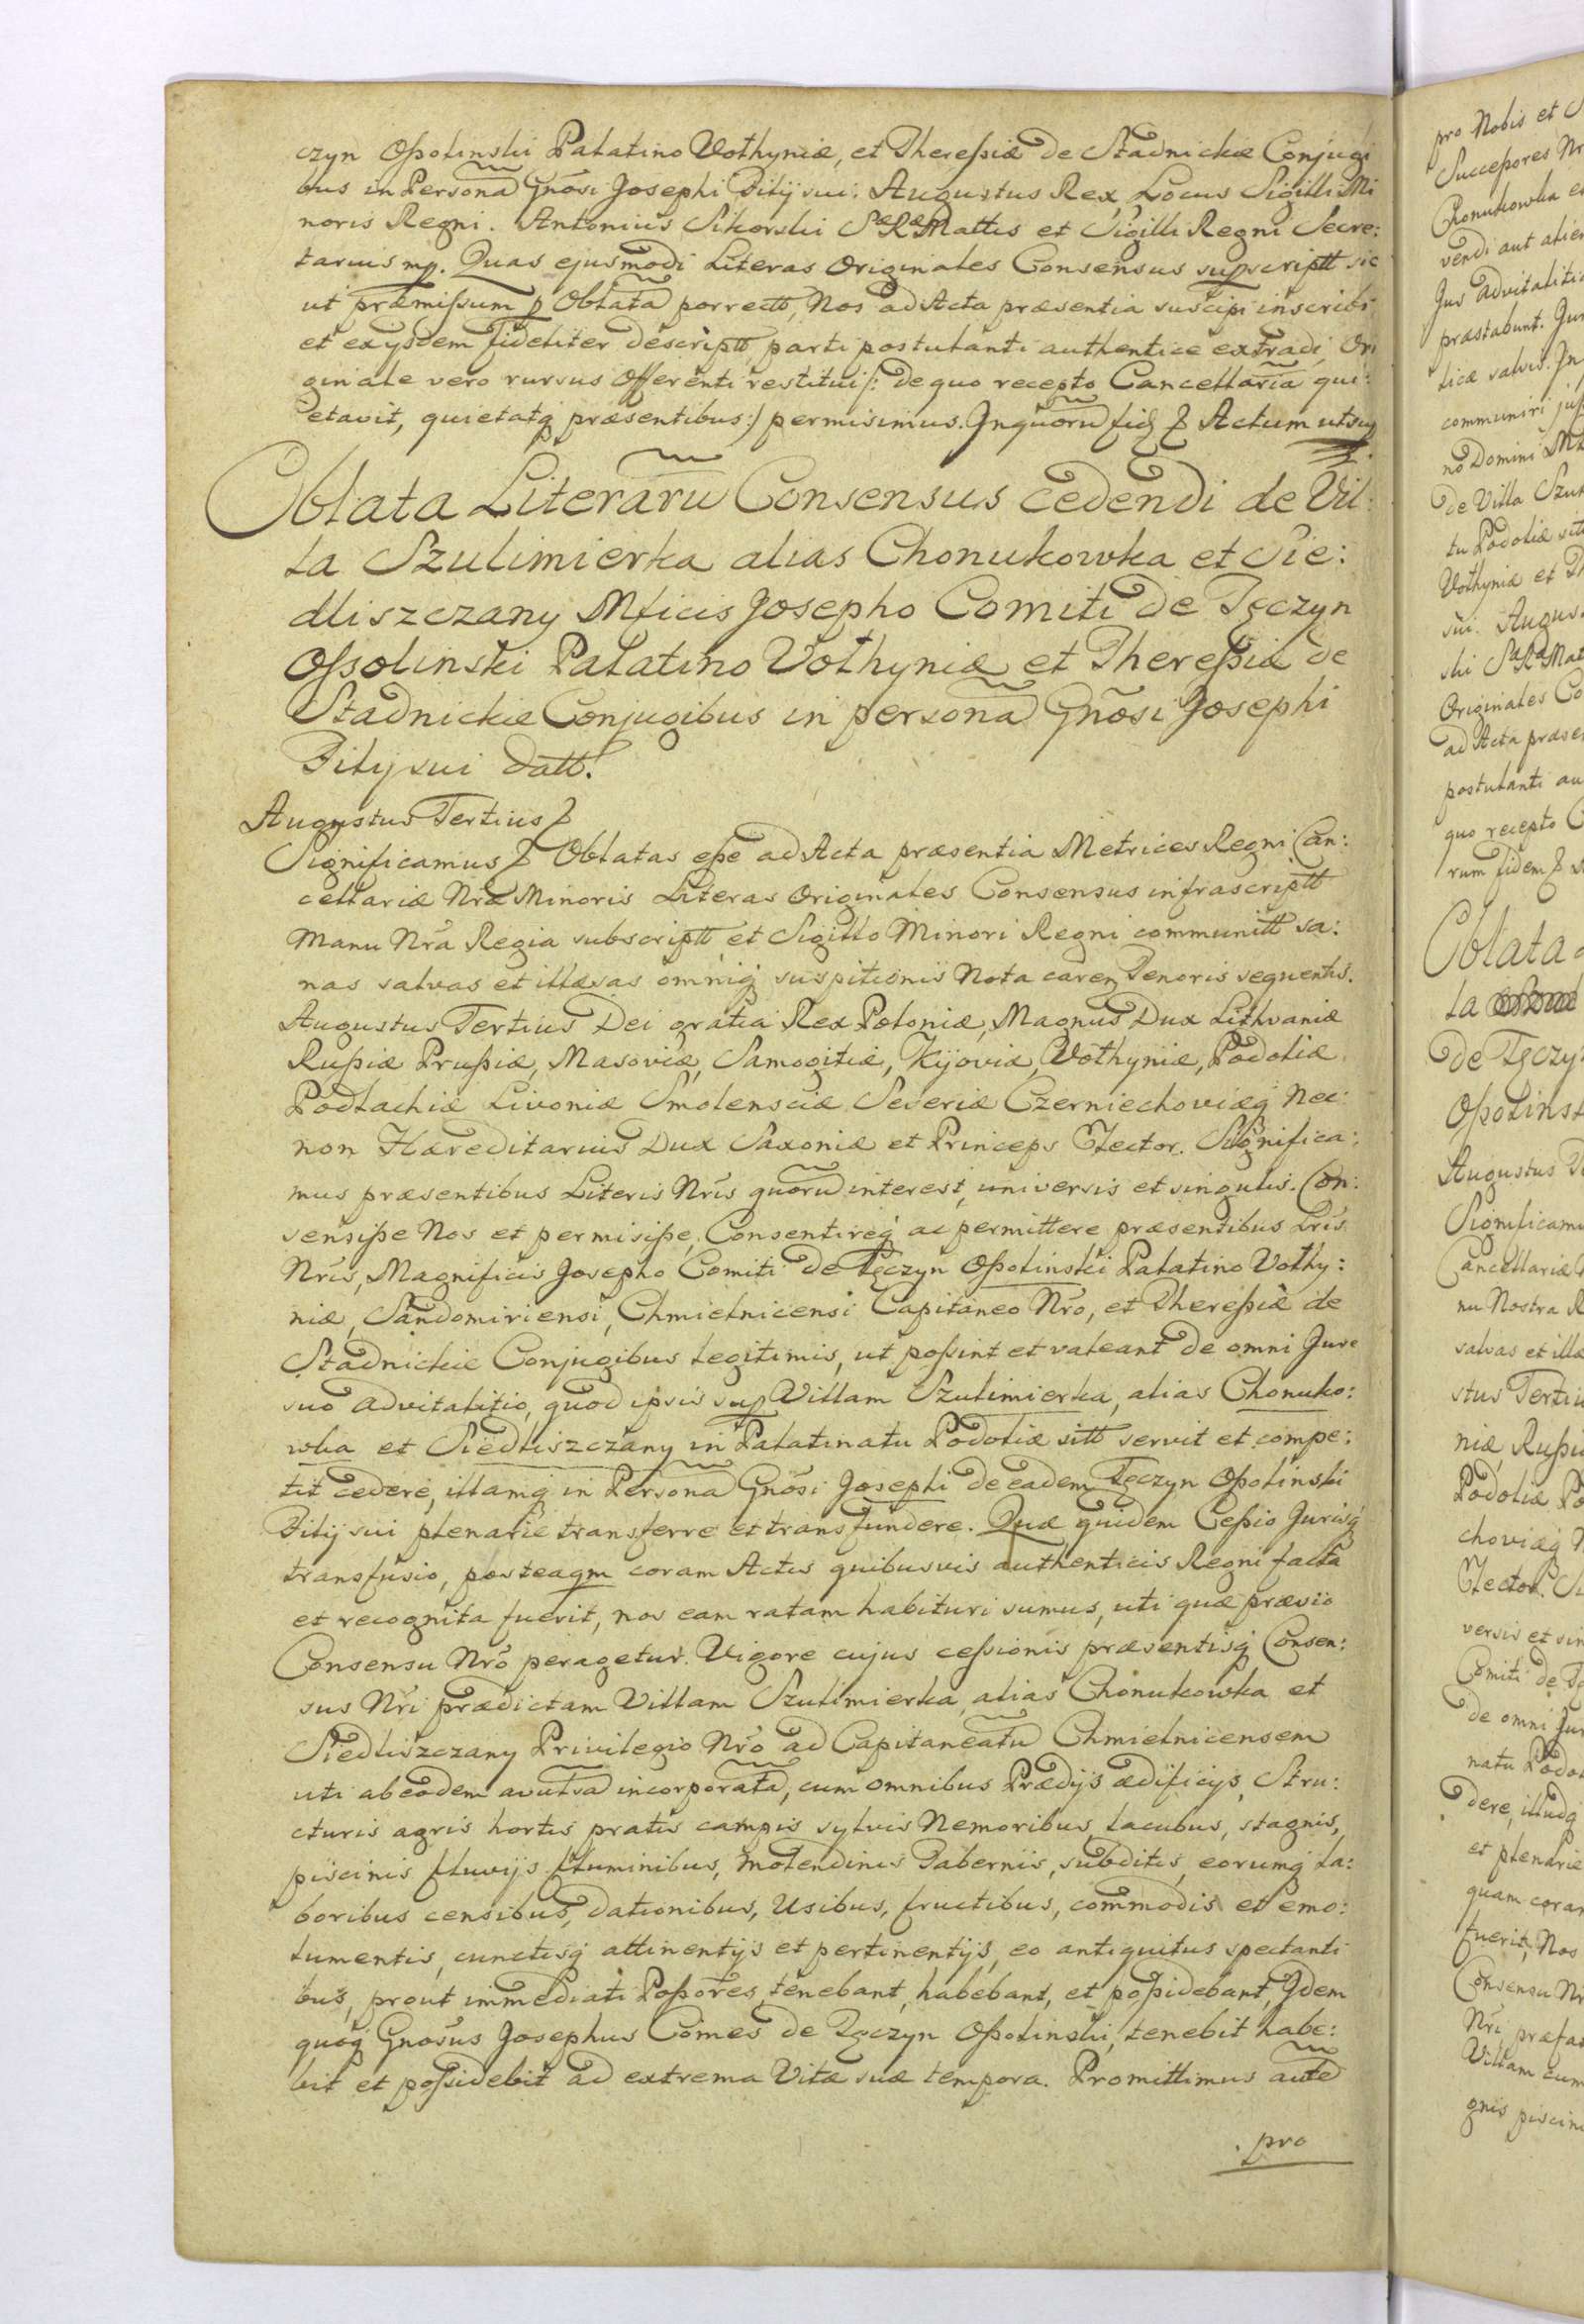 czyn Oſsolinski Palatino Volhyniæ, et Thereſsiæ de Stadnickie Conjugi
bus in Persona Gnōsi Josephi Filij sui: Augustus Rex, Locus Sigilli Mi
noris Regni. Antonius Sikorski Sæ Ræ Mattis et Sigilli Regni Secre:
tarius mp. Quas ejusmodi Literas Originales Consensus supscriptt sic
ut præmiſsum p Oblata porrectt, Nos ad Acta præsentia suscipi inscribi
et exysdem fideliter descriptt parti postulanti authentice extradi, Ori
ginale vero rursus Offerenti restitui /: de quo recepto Cancellaria qui:
etavit, quietatq præsentibus :/ permisimus. In quorū fid Actum ut sup
Oblata Literarū Consensus cedendi de Vil:
la Szulimierka alias Chonukowka et Sie:
dliszczany Mficis Josepho Comiti de Tęczyn
Oſsolinski Palatino Volhyniæ et Thereſsiæ de
Stadnickie Conjugibus in persona Gnōsi Josephi
Filij sui datt.
Augustus Tertius
Significamus Oblatas eſse ad Acta præsentia Metrices Regni Can:
cellariæ Nræ Minoris Literas Originales Consensus infrascriptt
Manu Nrā Regia subscriptt, et Sigillo Minori Regni communitt sa:
nas salvas et illæsas omniq suspitionis Nota caren Tenoris sequentis.
Augustus Tertius Dei gratia Rex Poloniæ, Magnus Dux Lithvaniæ
Ruſsiæ Pruſsiæ, Masoviæ, Samogitiæ, Kijoviæ, Volhyniæ, Podoliæ
Podlachiæ Livoniæ Smolensciæ Severiæ Czerniechoviæq Nec:
non Hæreditarius Dux Saxoniæ et Princeps Elector. Significa:
mus præsentibus Literis Nrīs quorū interest, universis et singulis. Con:
sensiſse Nos et permisiſse, Consentireq ac permittere præsentibus Lrīs
Nrīs, Magnificis Josepho Comiti de Tęczyn Oſsolinski Palatino Volhy:
niæ, Sandomiriensi, Chmielnicensi Capitaneo Nrō, et Thereſsiæ de
Stadnickie Conjugibus legitimis, ut poſsint et valeant de omni Jure
suo advitalitio, quod ipsis sup Villam Szulimierka, alias Chonuko:
wka et Siedliszczany in Palatinatu Podoliæ sitt servit et compe:
tit cedere, illamq in Persona Gnōsi Josephi de eadem Tęczyn Oſsolinski
Filij sui plenarie transferre et transfundere. Quæ quidem Ceſsio Jurisq
transfusio, posteaqm coram Actis quibusvis authenticis Regni facta
et recognita fuerit, nos eam ratam habituri sumus, uti quæ prævio
Consensu Nrō peragetur. Vigore cujus ceſsionis præsentisq Consen:
sus Nri prædictam Villam Szulimierka, alias Chonukowka et
Siedliszczany Privilegio Nrō ad Capitaneatū Chmielnicensem
uti ab eodem avulsa incorporata, cum omnibus Prædijs ædificijs, Stru:
cturis agris hortis pratis campis sylvis Nemoribus, lacubus, stagnis,
piscinis fluvijs fluminibus, Molendinis Tabernis, subditis, eorumq la:
boribus censibus, dationibus, Usibus, fructibus, commodis et emo:
lumentis, cunctisq attinentijs et pertinentijs, eo antiquitus spectanti
bus, prout immediati Poſsores tenebant, habebant, et poſsidebant, Idem
quoq Gnosus Josephus Comes de Tęczyn Oſsolinski, tenebit habe:
bit et poſsidebit ad extrema Vitæ suæ tempora. Promittimus aute
pro
pro Nobis et S
Succeſsores Nr
Chonukowka e
vendi aut alien
Jus advitaliti
præstabunt. Jur
licæ salvis. In
communiri juſ
no Domini M
de Villa Szul
tu Podoliæ sit
Volhyniæ et Th
sui. Augus
ski Sæ Ræ Mat
Originales Co
ad Acta præsen
postulanti au
quo recepto C
rum fidem
Oblata
la
de Tęczy
Oſsolinsk
Augustus T
Significamu
Cancellariæ
nu Nostra R
salvas et illæ
stus Tertiu
niæ, Ruſsi
Podoliæ Po
choviæq N
Elector. Si
versis et sin
Comiti de Tę
de omni Jur
natu Podol
dere, illudq
et plenarie
quam coram
fuerit, Nos
Consensu Nr
Nri præfat
Villam cum
gnis piscin